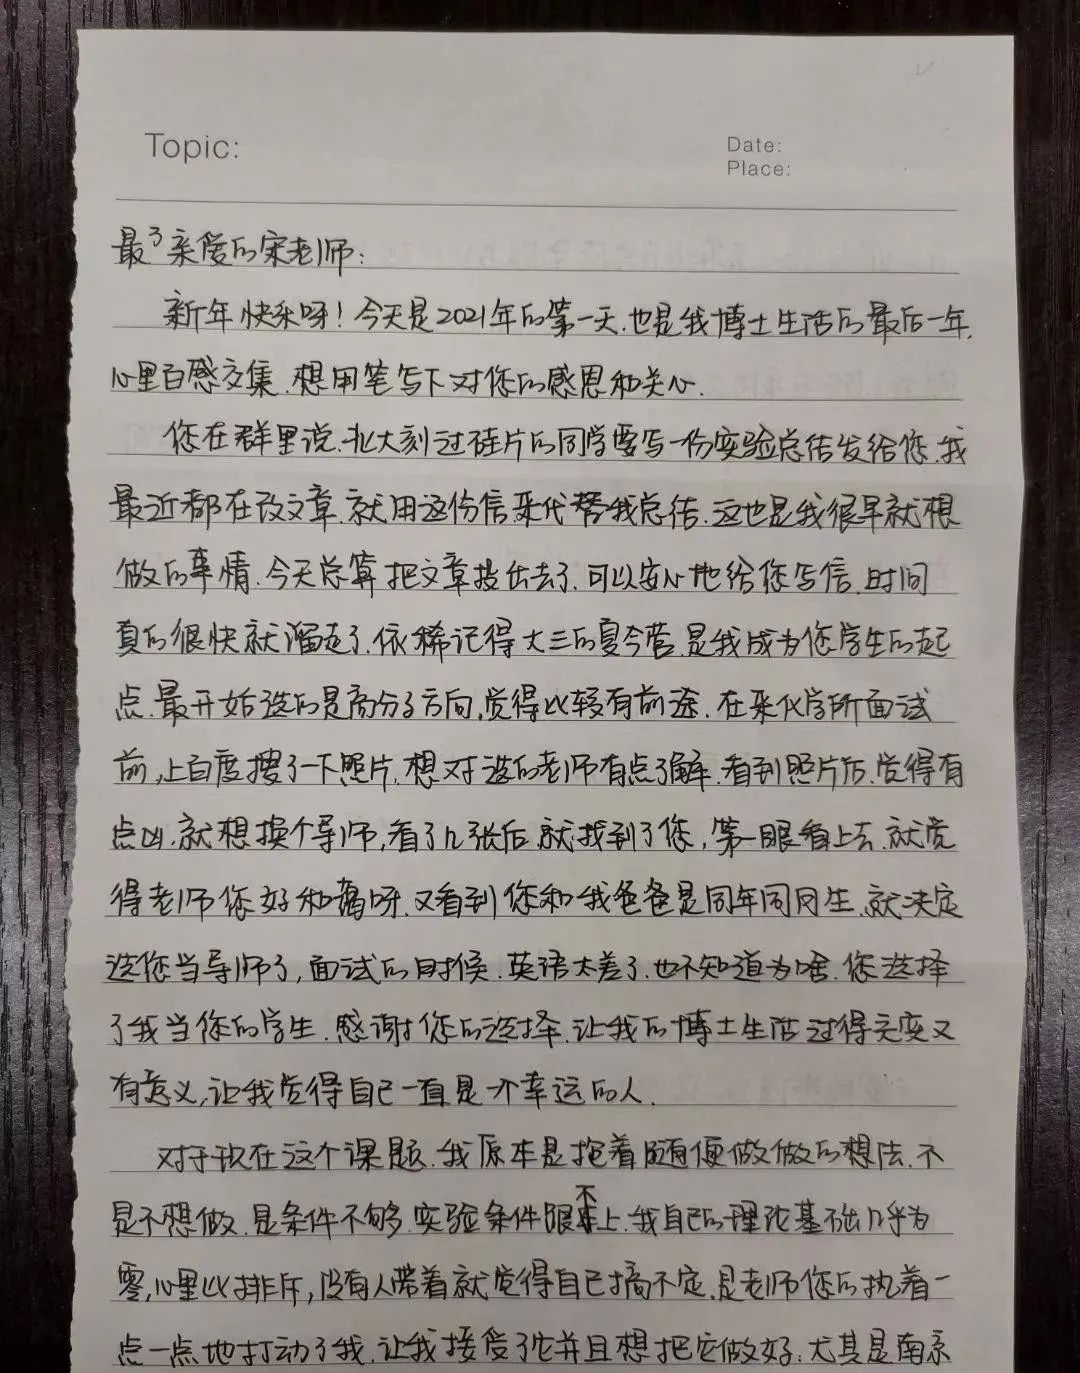 Topic:
Date:
Place:
最了亲爱的宋老师:
新年快乐呀!今天是2021年的第一天.也是我博士生活的最后一年,
心里百感交集.想用笔写下对您的感恩和关心.
您在群里说.北大刻过硅片的同学要写一份实验总结发给您.我
最近都在改文章.就用这份信来代替我总结.这也是我很早就想
做的事情.今天总算把文章投出去了.可以安心地给您写信.时间
真的很快就溜走了.依稀记得大三的夏令营.是我成为您学生的起
点.最开始选的是高分子方向,觉得比较有前途.在来化学所面试
前,上百度搜了一下照片.想对选的老师有点了解.看到照片后.觉得有
点凶.就想换个导师,看了几张后.就找到了您,第一眼看上去.就觉
得老师您好和蔼呀.又看到您和我爸爸是同年同月生.就决定
选您当导师了,面试的时候.英语太差了.也不知道为啥.您选择
了我当您的学生.感谢您的选择.让我的博士生活过得充实又
有意义,让我觉得自己一直是一个幸运的人.
对于现在这个课题.我原本是抱着随便做做的想法.不
是不想做.是条件不够.实验条件跟不上.我自己的理论基础几乎为
零,心里比排斥,没有人带着就觉得自己搞不定.是老师您的执着一
点一点地打动了我.让我接受了它并且想把它做好:尤其是南京